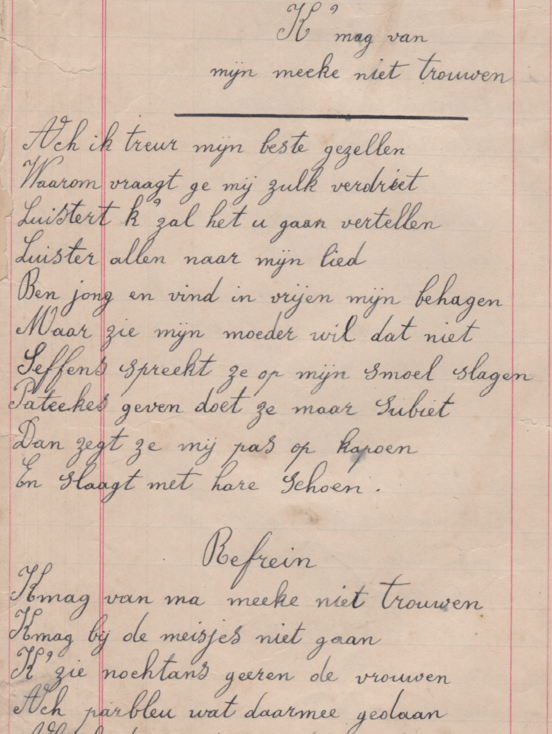 K' mag van
mijn meeke niet trouwen
Ach ik treur mijn beste gezellen
Waarom vraagt ge mij zulk verdriet
Luistert k' zal het u gaan vertellen
Luister allen naar mijn lied
Ben jong en vind in vrijen mijn behagen
Maar zie mijn moeder wil dat niet
Seffens spreekt ze op mijn smoel slagen
Pateekes geven doet ze maar subiet
Dan zegt ze mij pas op kapoen
En slaagt met hare schoen.
Refrein
Kmag van ma meeke niet trouwen
Kmag bij de meisjes niet gaan
K' zie nochtans geeren de vrouwen
Ach parbleu wat daarmee gedaan